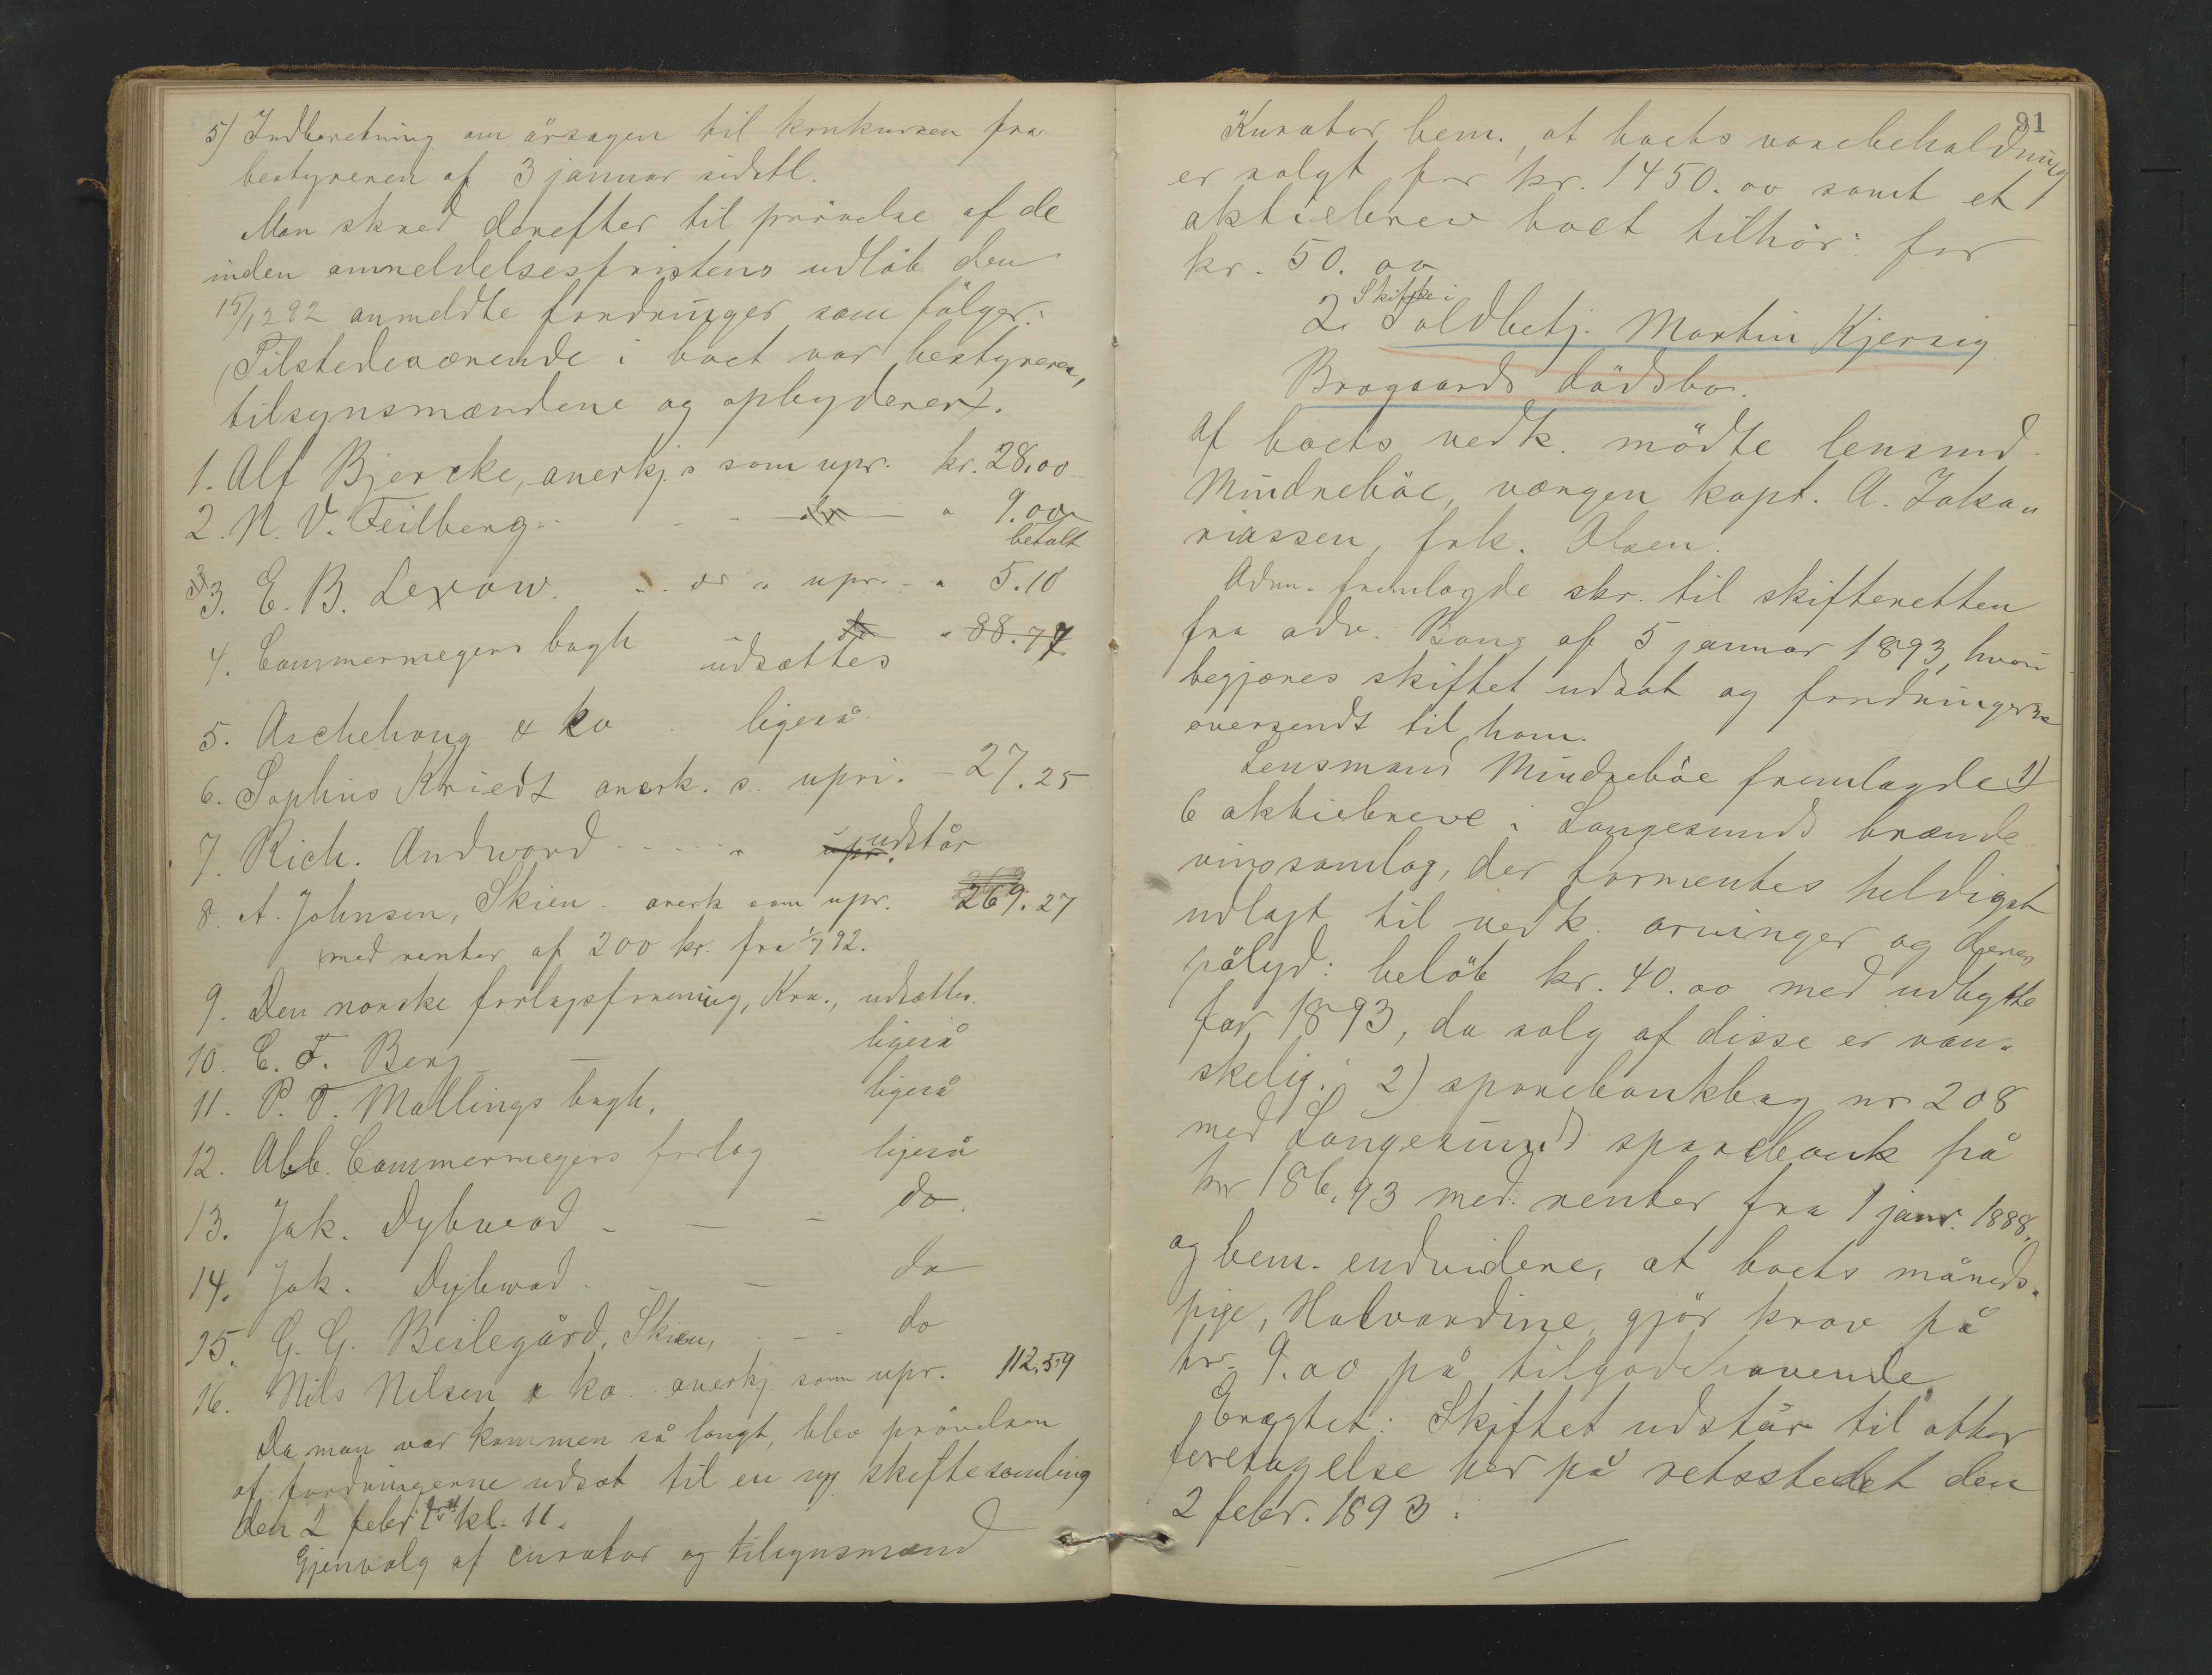 5) Indberetning om årsagen til konkursen fra
bestyreren af 3 januar sidstl.
Man skred derefter til prövelse af de
inden anmeldelsesfristens udlöb den
15/12 92 anmeldte fordringer som fölger:
Tilstedeværende i boet var bestyreren,
tilsynsmændene og opbyderen.
1. Alf Bjercke, anerkj. s som upr. kr. 28.00
2. N. V. Feilberg - - - do - " 9.00
betalt
3. E. B. Lexow. - " - upr. - " 5.10
4. Cammermeyers bogh do " 88.77
udsættes
5. Aschehoug & ko ligeså
6. Sophus Kriedt anerk. s. upri. - 27.25
7. Rich. Andvord - - - - " upr. udstår
8. A. Johnsen, Skien. anerk som upr. 269.27
med renter af 200 kr. fra 1/7 92.
9. Den norske forlagsforening, Kra., udsættes.
10. C. F. Berg — ligeså
11. P. T. Mallings bogh. ligeså
12. Alb. Cammermeyers forlag ligeså
13. Jak. Dybwad - — - do.
14. Jak. Dybwad - — do
15. G. G. Beilegård, Skien, - - - do
16. Nils Nilsen & ko. anerkj som upr. 112.59
Da man var kommen så langt, blev prövelsen
af fordringerne udsat til en ny skiftesamling
den 2 febr. kl. 11.
Gjenvalg af curator og tilsynsmænd
91
Kurator bem., at boets varebeholdning
er solgt for kr. 1450.00 samt et
aktiebrev boet tilhör: for
kr. 50.00
Skifte i
2. Toldbetj. Martin Kjersig
Brogaards dödsbo.
Af boets vedk. mödte lensmd.
Mindreböe, værgen kapt. A. Zaka"
riassen, frk. Olsen.
Adm. fremlagde skr. til skifteretten
fra adv. Bang af 5 januar 1893, hvori
begjæres skiftet udsat og fordringerne
oversendt til ham.
Lensmand Mindreböe fremlagde 1)
6 aktiebreve i Langesunds brænde
vinssamlag, der formentes heldigst
udlagt til vedk. arvinger og deres
pålyd: belöb kr. 40.00 med udbytte
for 1893, da salg af disse er van"
skelig; 2) sparebankbog nr 208
med Langesunds sparebank på
kr 186.93 med renter fra 1 janr. 1888,
og bem. endvidere, at boets måneds"
pige, Halvardine, gjör krav på
kr. 9.00 på tilgodehavende.
Eragtet: Skiftet udstår til atter
foretagelse her på retsstedet den
2 febr. 1893.